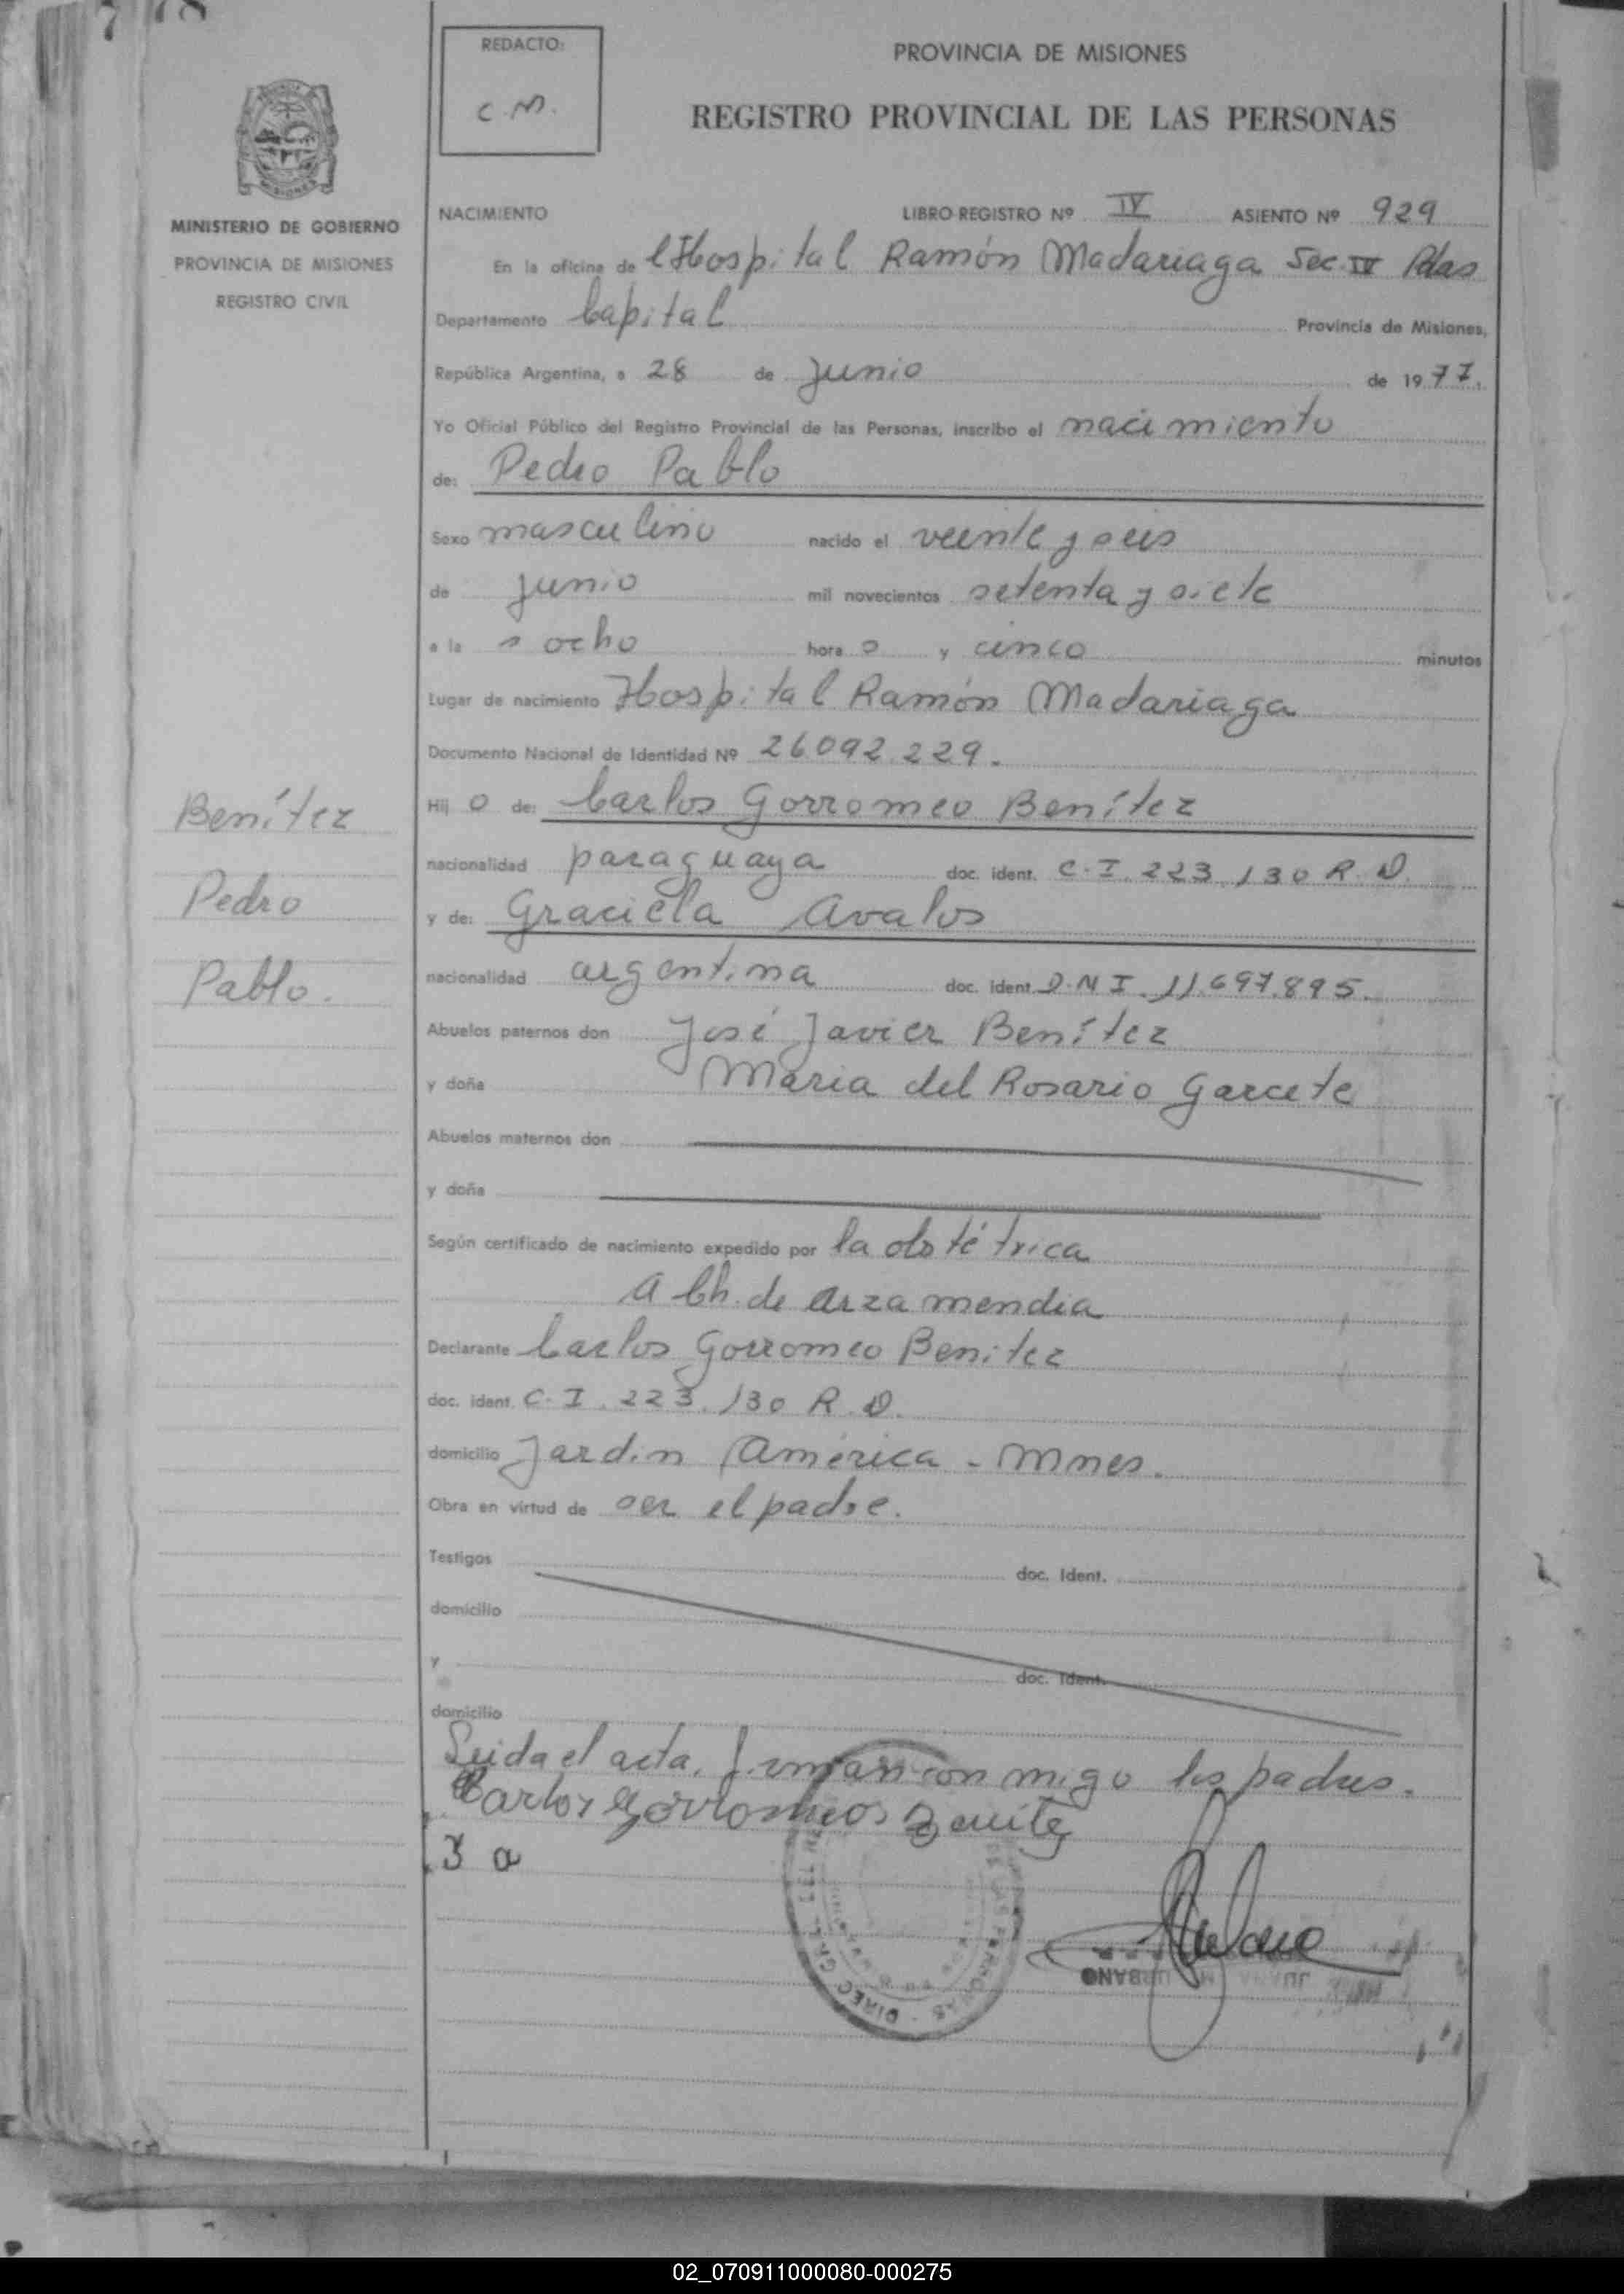 REDACTO:
C.M.
PROVINCIA DE MISIONES
REGISTRO PROVINCIAL DE LAS PERSONAS
MINISTERIO DE GOBIERNO
PROVINCIA DE MISIONES
REGISTRO CIVIL
NACIMIENTO LIBRO REGISTRO Nº IV ASIENTO Nº 929
En la oficina del Hospital Ramón Madariaga Sec. IV Pdas
Departamento Capital Provincia de Misiones,
República Argentina, a 28 de junio de 1977.
Yo Oficial Público del Registro Provincial de las Personas, inscribo el nacimiento
de: Pedro Pablo
Sexo masculino nacido el veinte y seis
de junio mil novecientos setenta y siete
a las ocho horas y cinco minutos
Lugar de nacimiento Hospital Ramón Madariaga
Documento Nacional de Identidad Nº 26.092.229.
Benítez
Hijo de: Carlos Gorromeo Benítez
nacionalidad paraguaya doc. ident. C.I. 223.130 R.D.
Pedro
y de: Graciela Avalos
nacionalidad argentina doc. ident. D.N.I. 11.697.895.
Pablo.
Abuelos paternos don José Javier Benítez
y doña Maria del Rosario Garcete
Abuelos maternos don
y doña
Según certificado de nacimiento expedido por la obstétrica
A Ch. de Arzamendia
Declarante Carlos Gorromeo Benitez
doc. ident. C.I. 223.130 R.D.
domicilio Jardin América - Mnes.
Obra en virtud de ser el padre.
Testigos doc. Ident.
domicilio
y doc. Ident.
domicilio
Leida el acta, firman conmigo los padres.
Carlos Gorromeos Benitez
3 a
URBANO
02_070911000080-000275